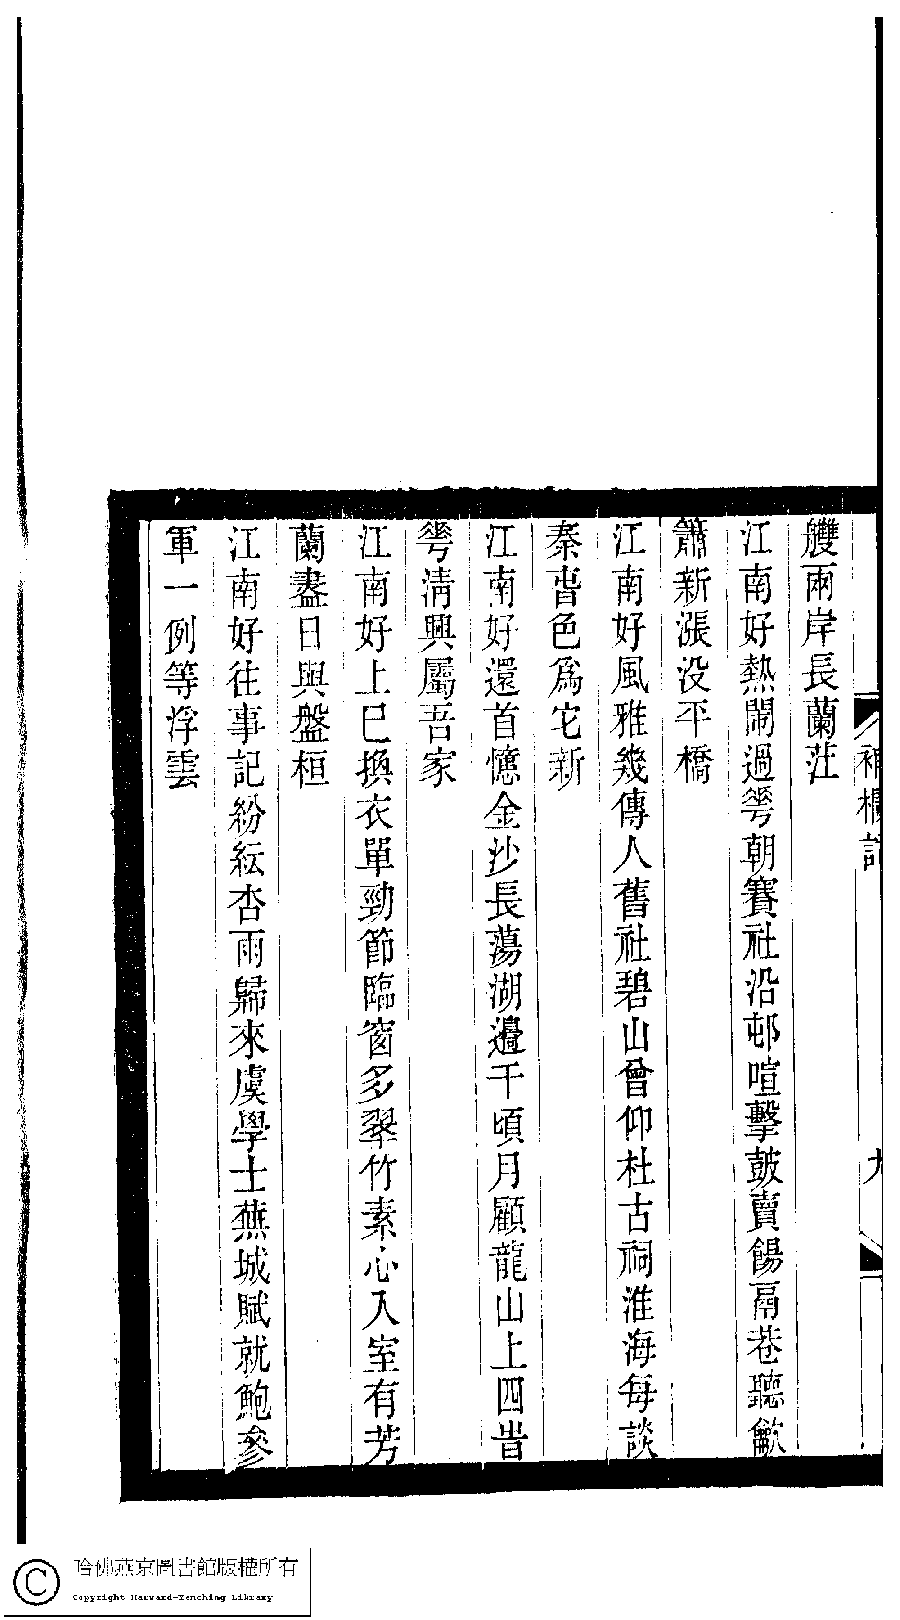 補欄詞
九
艭兩岸長蘭茳
江南好熱鬧過蕚朝賽社沿邨喧擊鼓賣餳鬲巷聽龡
簫新漲没平橋
江南好風雅幾傳人舊社碧山曾仰杜古祠淮海每談
秦旹色爲它新
江南好還首憶金沙長蕩湖邊千頃月顧龍山上四旹
蕚淸興屬吾家
江南好上巳換衣單勁節臨窗多翠竹素心入室有芳
蘭盡日與盤桓
江南好往事記紛紜杏雨歸來虞學士蕪城賦就鮑參
軍一例等浮雲
哈佛燕京圖書館版權所有
Copyright Harvard-Yenching Library